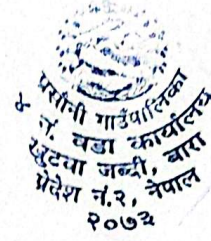 प्रसौनी गाउँपालिका
४ नं. वडा कार्यालय
खुटवा जब्दी, बारा
प्रदेश नं.२, नेपाल
२०७३